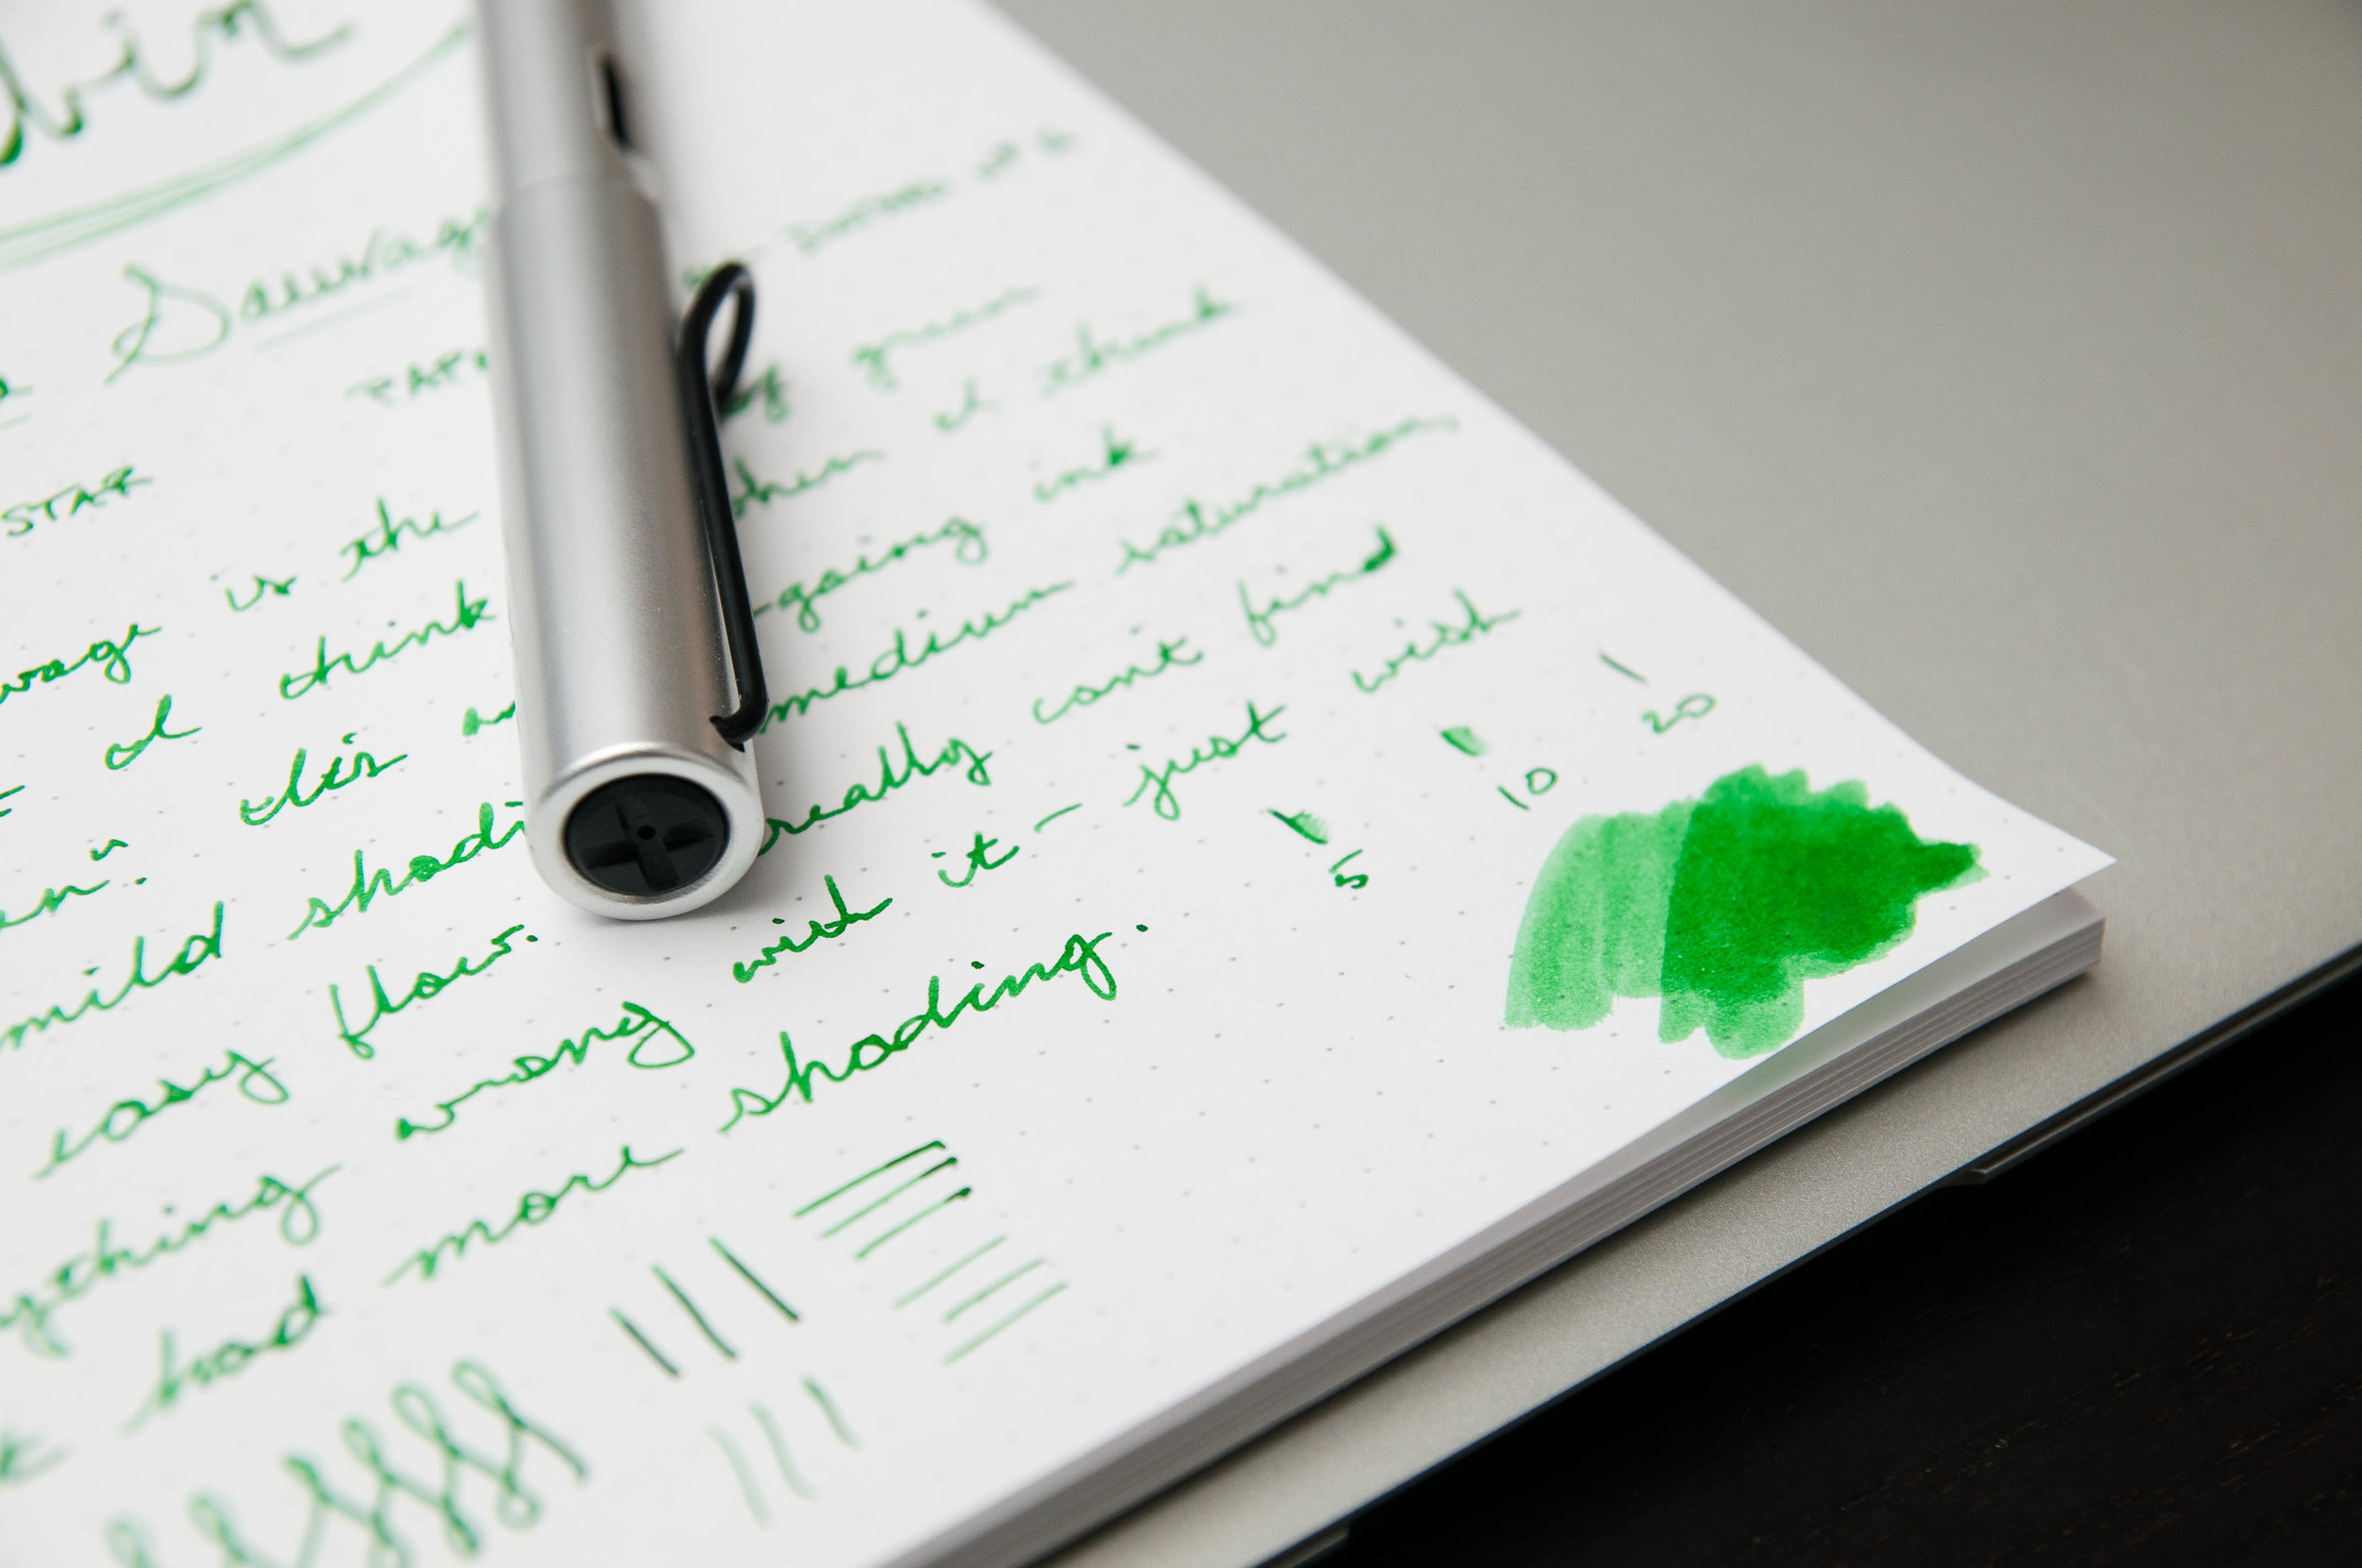 bin
Sauvag
STAR
wage is the of green
I think when I think
en". It's a -going ink
mild shadi medium saturation,
easy flow. really can't find
ything wrong with it – just wish
had more shading.
5 10 20